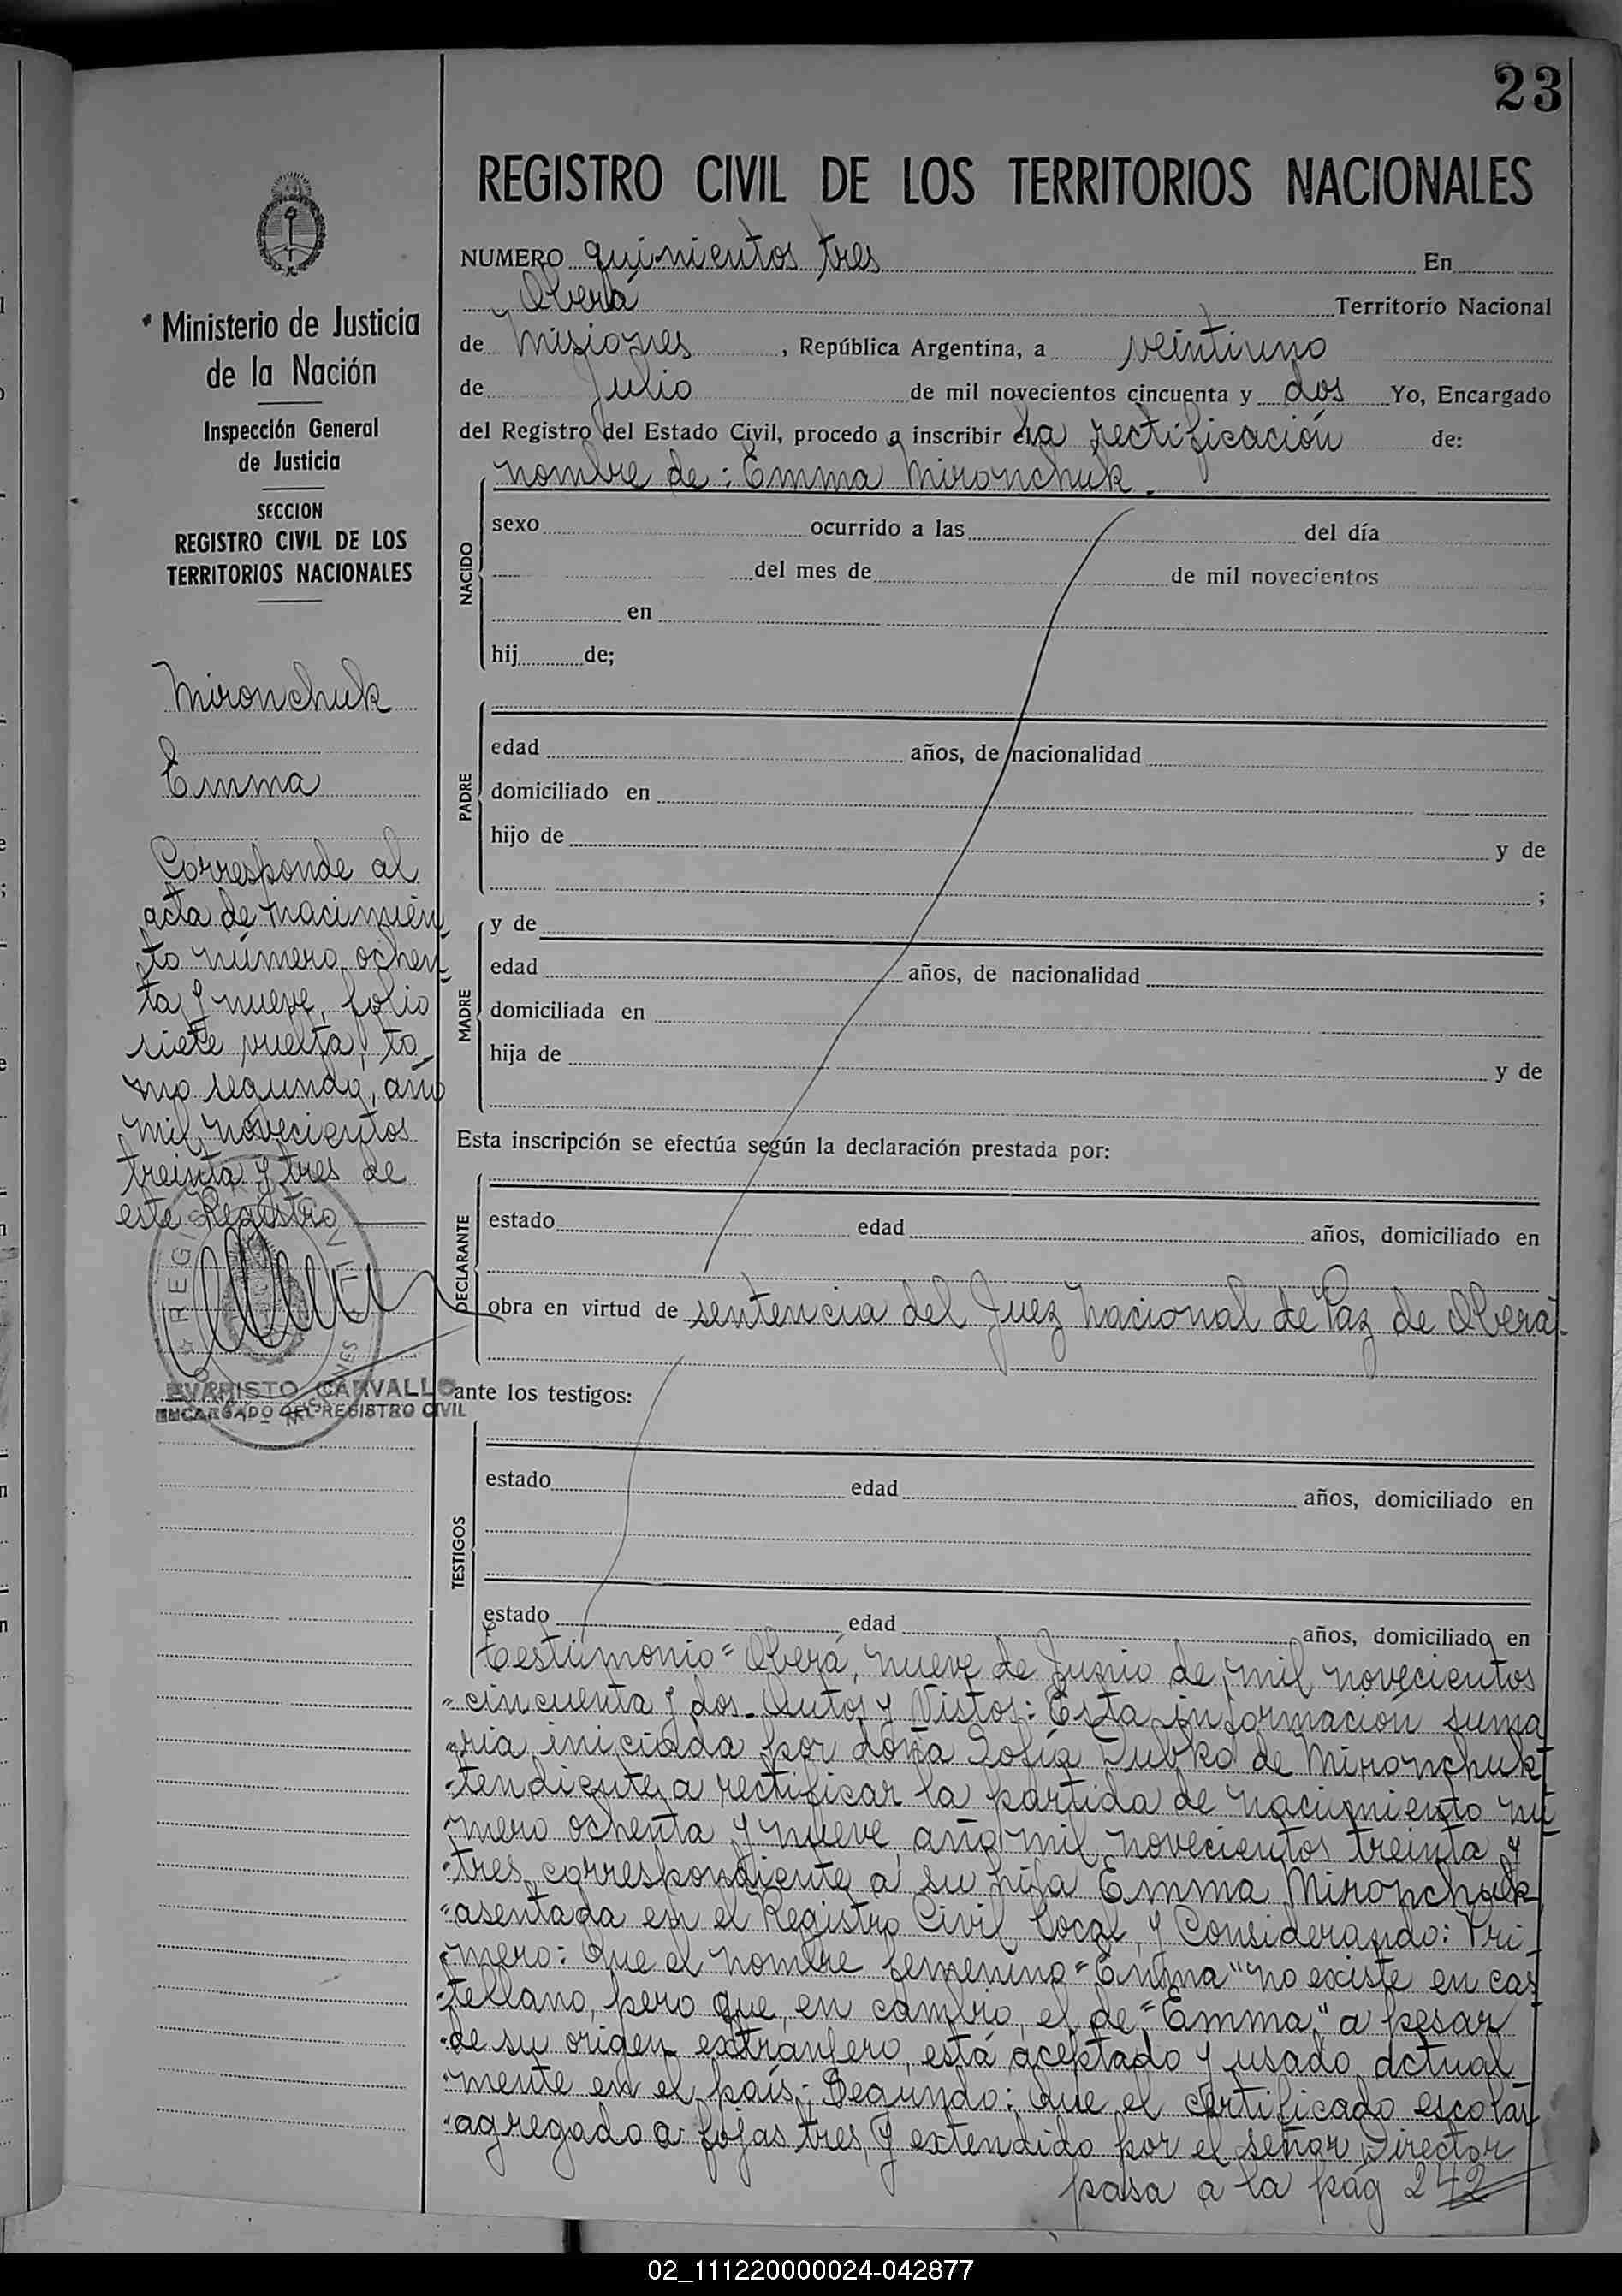 23
REGISTRO CIVIL DE LOS TERRITORIOS NACIONALES
NUMERO quinientos tres En
Oberá Territorio Nacional
de Misiones, República Argentina, a veintiuno
de Julio de mil novecientos cincuenta y dos Yo, Encargado
del Registro del Estado Civil, procedo a inscribir la rectificación de:
nombre de: Emma Mironchuk.
NACIDO
sexo ocurrido a las del día
del mes de de mil novecientos
en
hij de;
PADRE
edad años, de nacionalidad
domiciliado en
hijo de y de
;
MADRE
y de
edad años, de nacionalidad
domiciliada en
hija de y de
Esta inscripción se efectúa según la declaración prestada por:
DECLARANTE
estado edad años, domiciliado en
obra en virtud de sentencia del Juez Nacional de Paz de Oberá.-
ante los testigos:
TESTIGOS
estado edad años, domiciliado en
estado edad años, domiciliado en
Testimonio = Oberá, nueve de Junio de mil novecientos
"cincuenta y dos. Autos y Vistos: Esta información suma
"ria iniciada por doña Sofía Dubko de Mironchuk
"tendiente a rectificar la partida de nacimiento nú
"mero ochenta y nueve, año mil novecientos treinta y
"tres, correspondiente a su hija Emma Mironchuk
"asentada en el Registro Civil local, y Considerando: Pri-
"mero: Que el nombre femenino "Enma" no existe en cas
"tellano, pero que, en cambio, el de "Emma", a pesar
"de su origen extranjero, está aceptado y usado actual-
"mente en el país; Segundo: Que el certificado escolar
"agregado a fojas tres, y extendido por el señor Director
pasa a la pág 242
Ministerio de Justicia
de la Nación
Inspección General
de Justicia
SECCION
REGISTRO CIVIL DE LOS
TERRITORIOS NACIONALES
Mironchuk
Emma
Corresponde al
acta de nacimien-
to número ochen-
ta y nueve, folio
siete vuelta, to-
mo segundo, año
mil novecientos
treinta y tres de
este Registro
EVARISTO CARVALLO
ENCARGADO DEL REGISTRO CIVIL
02_111220000024-042877